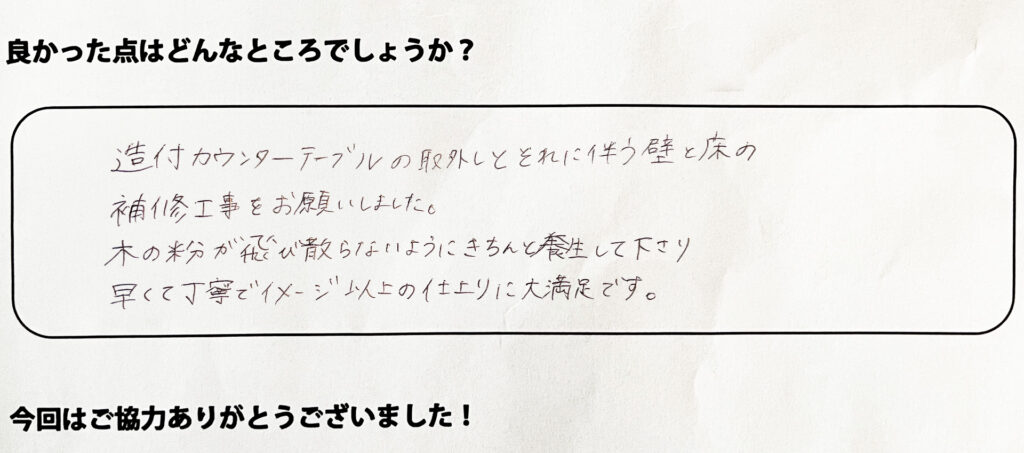 良かった点はどんなところでしょうか？
造付カウンターテーブルの取外しとそれに伴う壁と床の
補修工事をお願いしました。
木の粉が飛び散らないようにきちんと養生して下さり
早くて丁寧でイメージ以上の仕上りに大満足です。
今回はご協力ありがとうございました！